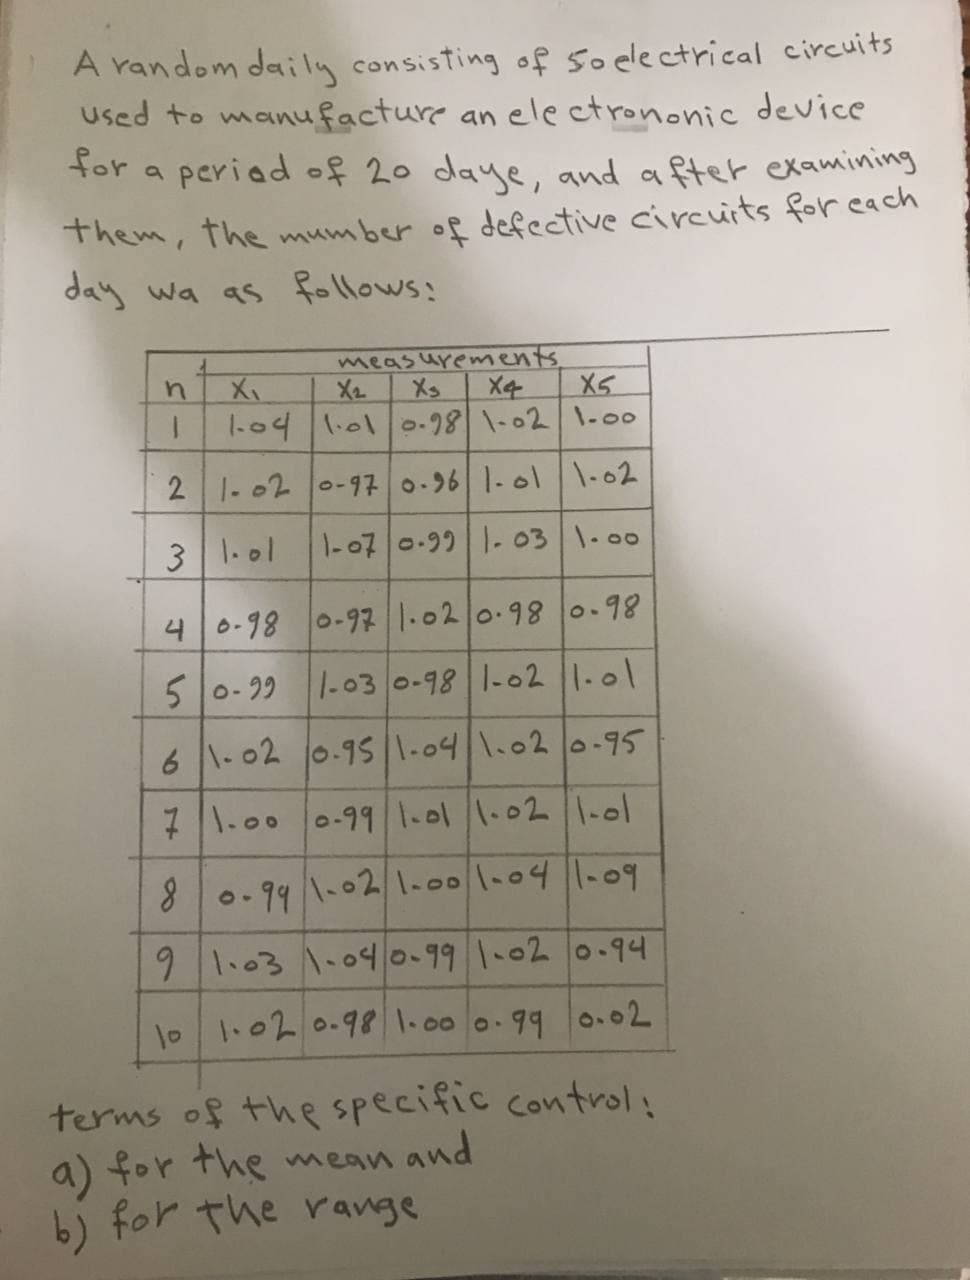 A random daily consisting of 50 electrical circuits
used to manufacture an electrononic device
for a period of 20 daye, and after examining
them, the mumber of defective circuits for each
day wa as follows:
measurements
n X1 X2 X3 X4 X5
1 1.04 1.01 0.98 1.02 1.00
2 1.02 0.97 0.96 1.01 1.02
3 1.01 1.07 0.99 1.03 1.00
4 0.98 0.97 1.02 0.98 0.98
5 0.99 1.03 0.98 1.02 1.01
6 1.02 0.95 1.04 1.02 0.95
7 1.00 0.99 1.01 1.02 1.01
8 0.99 1.02 1.00 1.04 1.09
9 1.03 1.04 0.99 1.02 0.94
10 1.02 0.98 1.00 0.99 0.02
terms of the specific control:
a) for the mean and
b) for the range